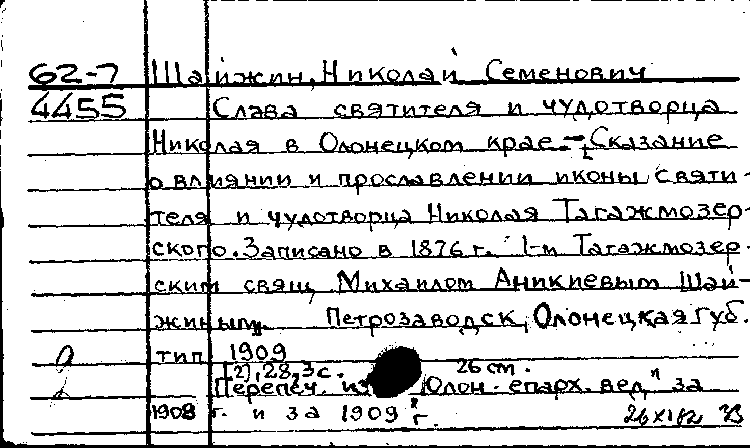 62-7 Шайжин, Николай Семенович
4455 Слава святителя и чудотворца
Николая в Олонецком крае. – [Сказание
о влиянии и прославлении иконы святи-
теля и чудотворца Николая Тагажмозер-
ского. Записано в 1876 г. 1-м Тагажмозер-
ским свящ. Михаилом Аникиевым Шай-
жиным. Петрозаводск, Олонецкая губ.
тип. 1909
[2], 28, 3 с. 26 см.
Перепеч. из "Олон. епарх. вед." за
1908 г. и за 1909 г.